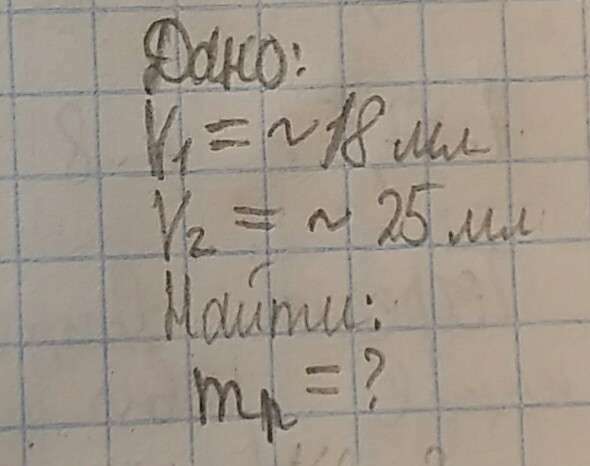 Дано:
V₁ = ~18 мл
V₂ = ~ 25 мл
Найти:
mₚ = ?